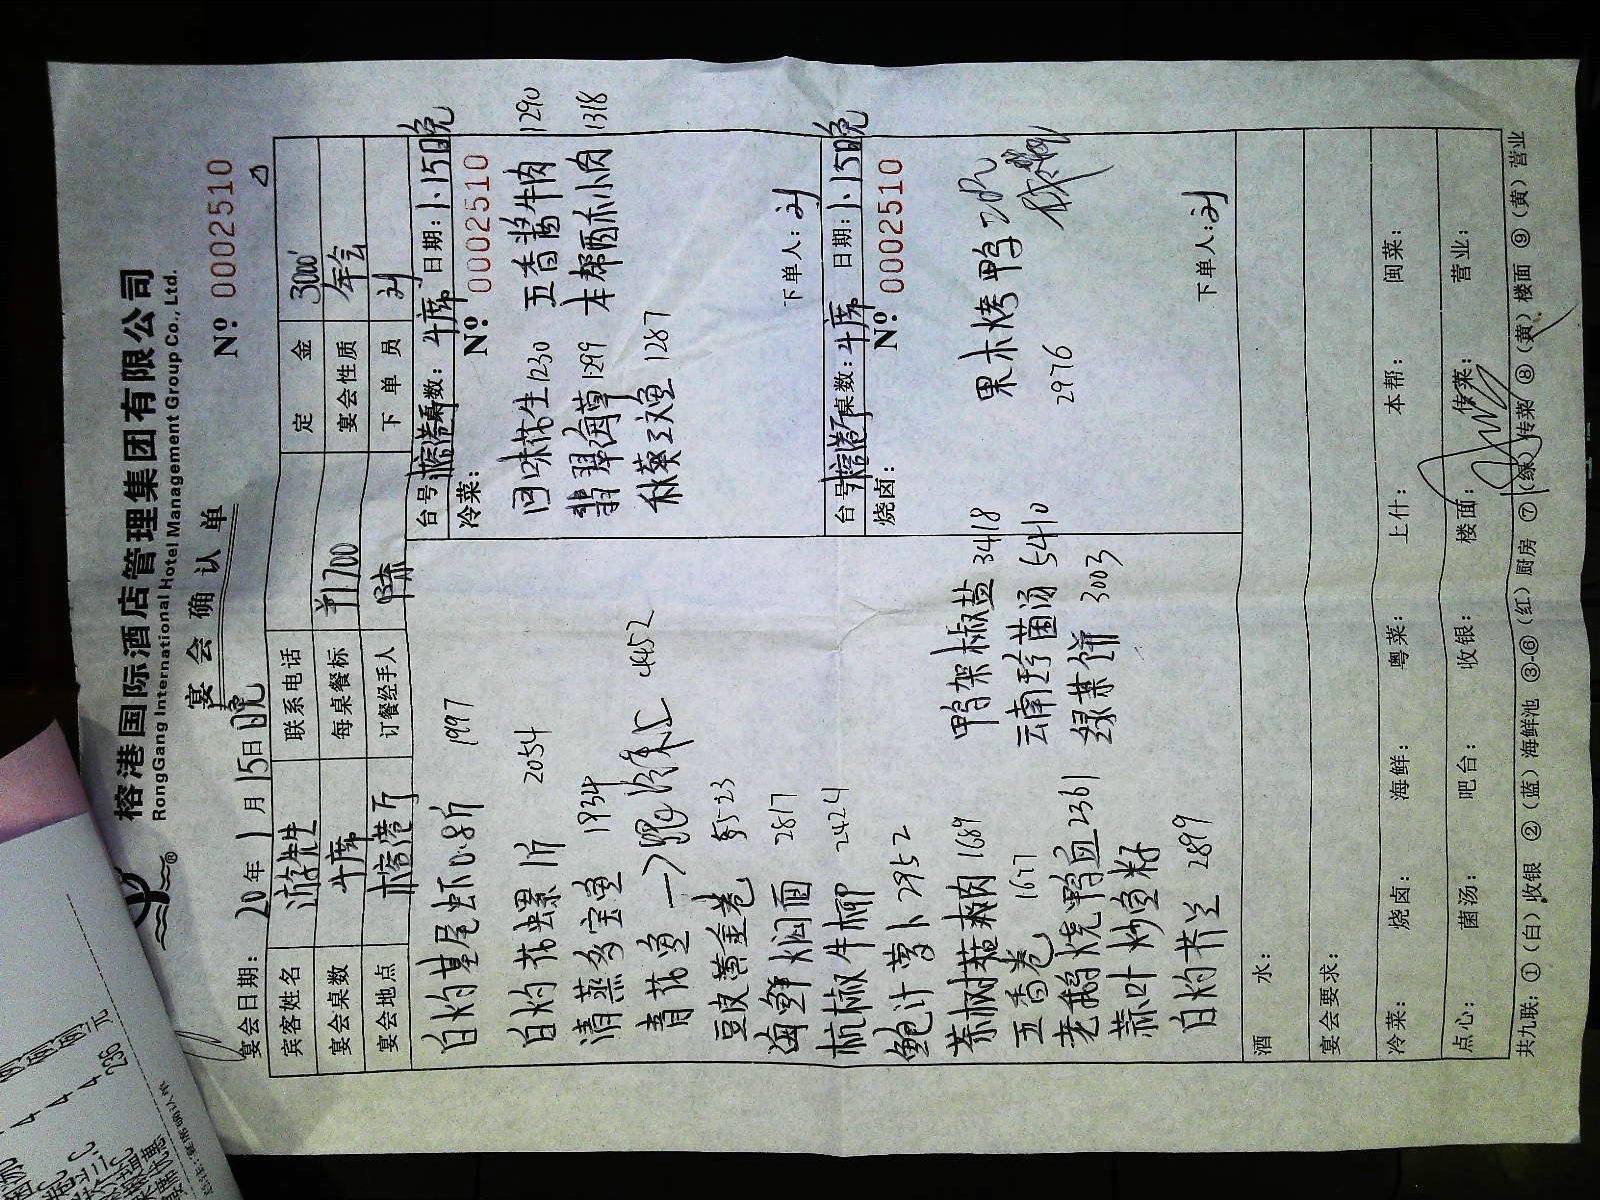 榕港国际酒店管理集团有限公司
RongGang International Hotel Management Group Co., Ltd.
宴会确认单
宴会日期：20 年 1 月 15日 晚
№ 0002510
宾客姓名 游先生 联系电话 定金 3000
宴会桌数 4席 每桌餐标 ¥1700 宴会性质 年会
宴会地点 榕港厅 订餐经手人 下单员 刘
白灼基尾虾0.8斤 1997
白灼花螺1斤 2054
清蒸多宝鱼 1934
青花鱼 4452
豆皮黄金卷 5523
海鲜焖面 2817
杭椒牛柳 2424
鲍汁萝卜 2952
茶树菇爽肉 1689
五香卷 1677
老鹅烧鸭血 2361
蒜叶炒鱼籽
白灼芥兰 2899
鸭架椒盐 3418
云南珍菌汤 5410
绿茶饼 3003
台号 榕港厅 桌数：4席 日期：1.15日晚
冷菜：
№ 0002510
回味花生 1230 五香酱牛肉 1290
翡翠海草 1299 本帮酥小肉 1318
秋葵三文鱼 1287
下单人：刘
台号 榕港厅 桌数：4席 日期：1.15日晚
烧卤：
№ 0002510
果木烤鸭 2只
2976
下单人：刘
酒水：
宴会要求：
冷菜： 烧卤： 海鲜： 粤菜： 上什： 本帮： 闽菜：
点心： 菌汤： 吧台： 收银： 楼面： 传菜： 营业：
共九联：①（白）收银 ②（蓝）海鲜池 ③-⑥（红）厨房 ⑦（绿）传菜 ⑧（黄）楼面 ⑨（黄）营业
236 元